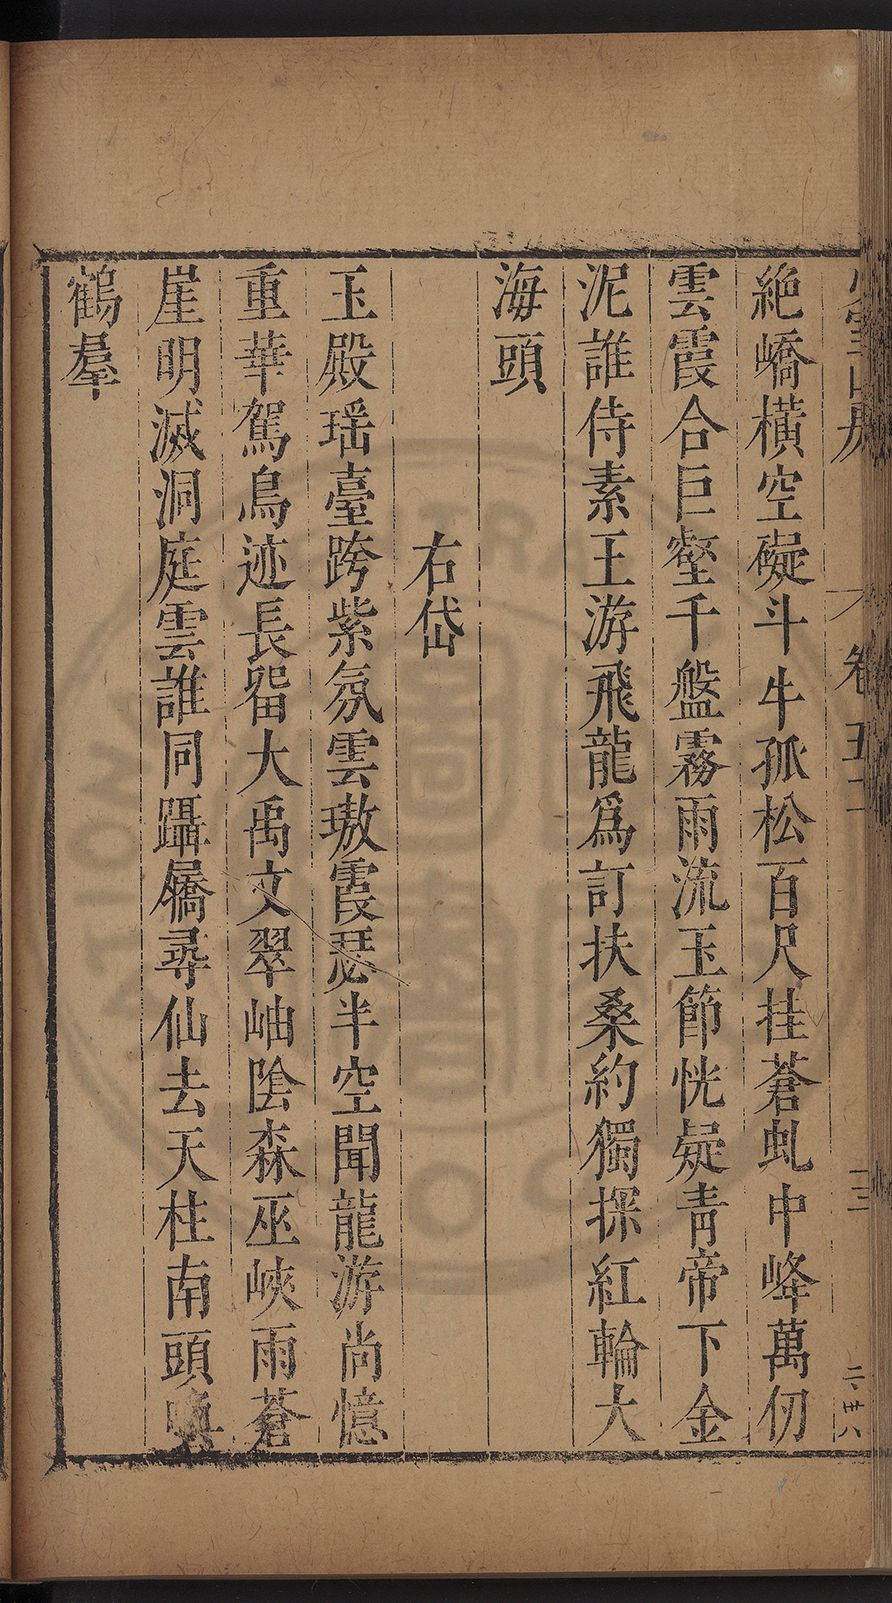 卷五十二
三
二·卅八
絕嶠橫空礙斗牛孤松百尺挂蒼虬中峰萬仞
雲霞合巨壑千盤霧雨流玉節恍疑青帝下金
泥誰侍素王游飛龍爲訂扶桑約獨探紅輪大
海頭
右岱
玉殿瑶臺跨紫氛雲璈霞瑟半空聞龍游尚憶
重華駕鳥迹長留大禹文翠岫陰森巫峽雨蒼
崖明滅洞庭雲誰同躡屩尋仙去天柱南頭
鶴羣